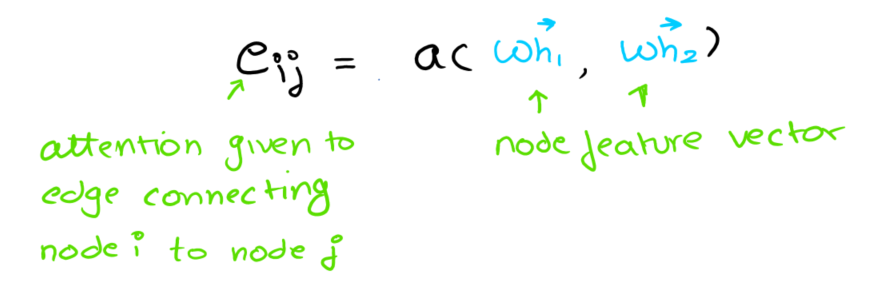 e_ij = a( Wh⃗₁ , Wh⃗₂ )
attention given to
edge connecting
node i to node j
node feature vector